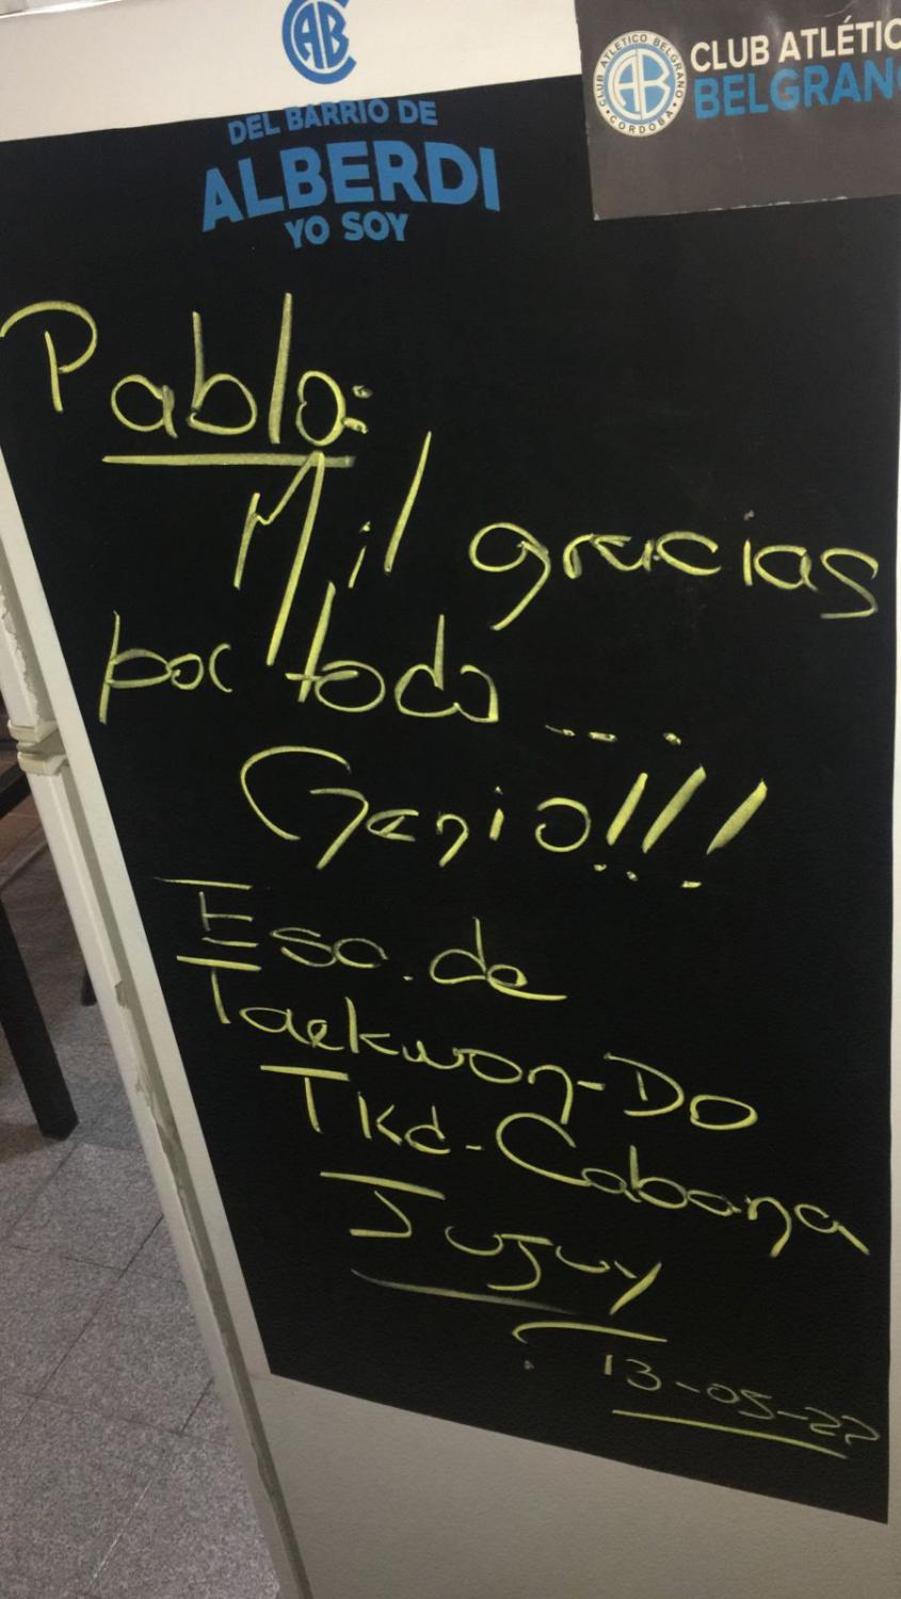 CAB
DEL BARRIO DE
ALBERDI
YO SOY
CLUB ATLETICO BELGRANO
CORDOBA
CLUB ATLÉTIC
BELGRANO
Pablo:
Mil gracias
por todo ....
Genio!!!
Esc. de
Taekwon-Do
Tkd-Cabana
Jujuy
13-05-22